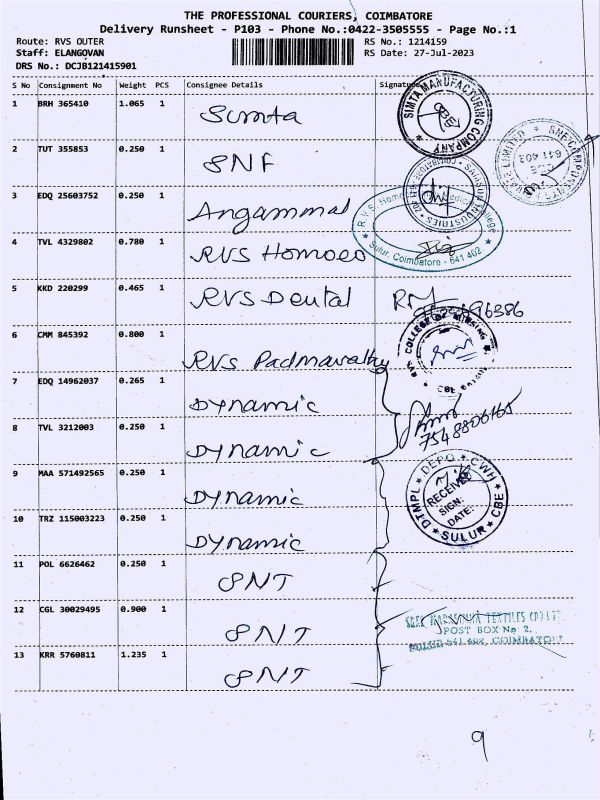 THE PROFESSIONAL COURIERS, COIMBATORE
Delivery Runsheet - P103 - Phone No.:0422-3505555 - Page No.:1
Route: RVS OUTER RS No.: 1214159
Staff: ELANGOVAN RS Date: 27-Jul-2023
DRS No.: DCJB121415901
S No Consignment No Weight PCS Consignee Details Signature
1 BRH 365410 1.065 1 Simta
SIMTA MANUFACTURING COMPANY
2 TUT 355853 0.250 1 SNF
641 402
3 EDQ 25603752 0.250 1 Angammal
R.V.S. Homoeo Medical College
Sulur, Coimbatore - 641 402
4 TVL 4329802 0.780 1 RVS Homoeo
5 KKD 220299 0.465 1 RVS Dental
6 CMM 845392 0.800 1 RVS Padmavathy
RVS COLLEGE OF NURSING
7 EDQ 14962037 0.265 1 Dynamic
8 TVL 3212003 0.250 1 Dynamic
7548806165
9 MAA 571492565 0.250 1 Dynamic
DTMPL DEPO CWH CBE SULUR
RECEIVED
SIGN:
DATE:
10 TRZ 115003223 0.250 1 Dynamic
11 POL 6626462 0.250 1 SNT
12 CGL 30029495 0.900 1 SNT
SREE NARASIMHA TEXTILES (P) LTD
POST BOX No 2,
SULUR 641 402, COIMBATORE
13 KRR 5760811 1.235 1 SNT
9